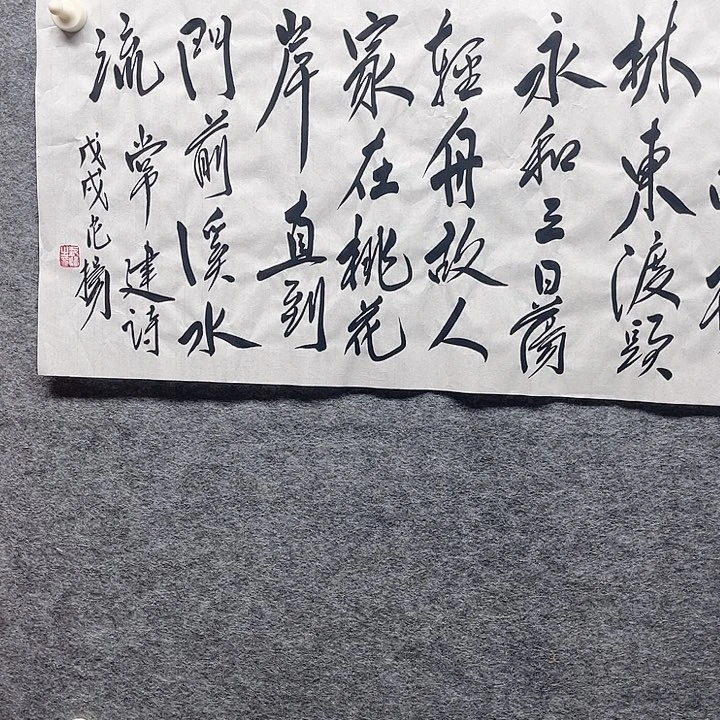 林東渡頭
永和三日蕩
輕舟故人
家在桃花
岸直到
門前溪水
流
常建詩
戊戌